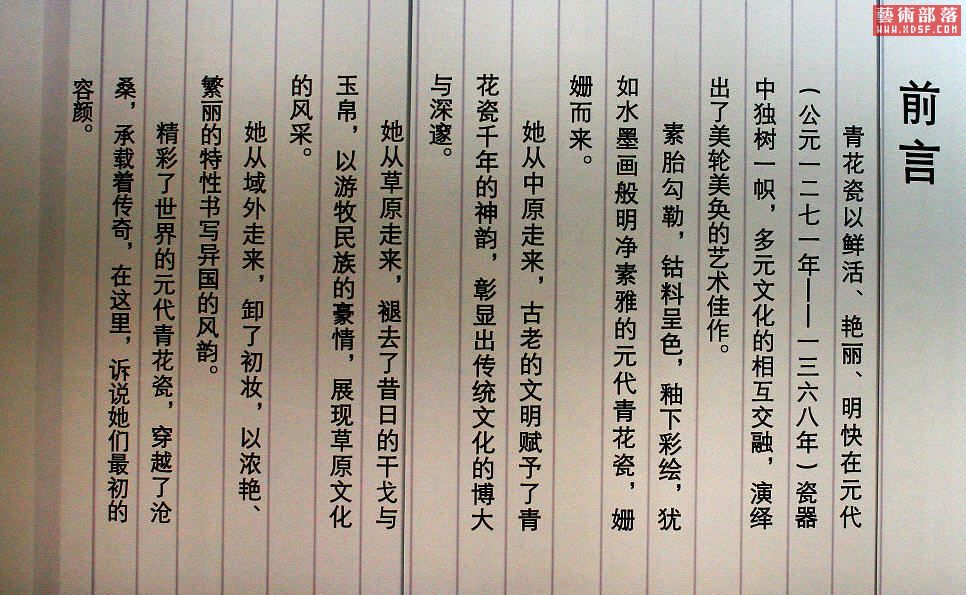 藝術部落
WWW.XDSF.COM
前言
青花瓷以鲜活、艳丽、明快在元代
(公元一二七一年——一三六八年)瓷器
中独树一帜，多元文化的相互交融，演绎
出了美轮美奂的艺术佳作。
素胎勾勒，钴料呈色，釉下彩绘，犹
如水墨画般明净素雅的元代青花瓷，姗
姗而来。
她从中原走来，古老的文明赋予了青
花瓷千年的神韵，彰显出传统文化的博大
与深邃。
她从草原走来，褪去了昔日的干戈与
玉帛，以游牧民族的豪情，展现草原文化
的风采。
她从域外走来，卸了初妆，以浓艳、
繁丽的特性书写异国的风韵。
精彩了世界的元代青花瓷，穿越了沧
桑，承载着传奇，在这里，诉说她们最初的
容颜。